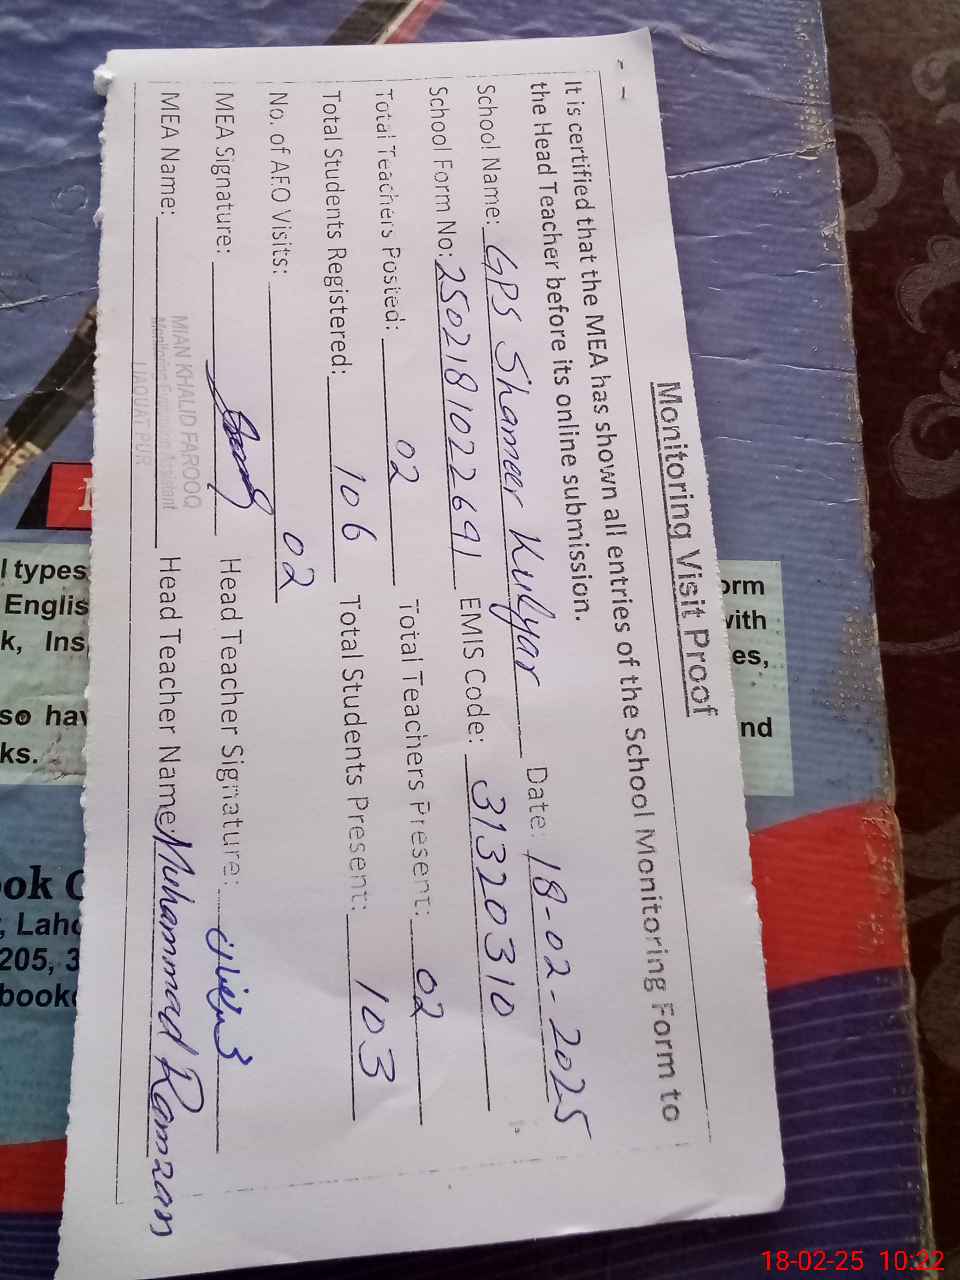 Monitoring Visit Proof
It is certified that the MEA has shown all entries of the School Monitoring Form to
the Head Teacher before its online submission.
School Name: GPS Shameer Kulyar Date: 18-02-2025
School Form No: 2502181022691 EMIS Code: 31320310
Total Teachers Posted: 02 Total Teachers Present: 02
Total Students Registered: 106 Total Students Present: 103
No. of AEO Visits: 02
MEA Signature: Head Teacher Signature:
MEA Name: Head Teacher Name: Muhammad Ramzan
MIAN KHALID FAROOQ
Monitoring Assistant
LIAQUAT PUR
l types
Englis
k, Ins
so hav
ks.
orm
with
es,
nd
ook
, Laho
205, 3
book
18-02-25 10:22